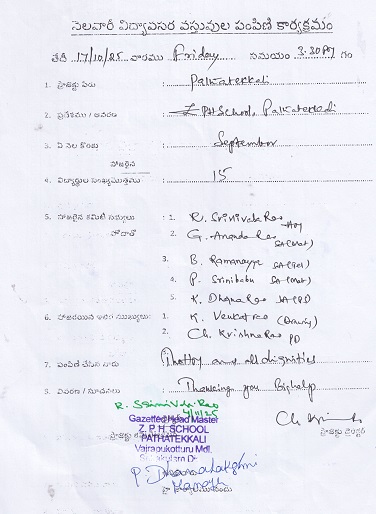 నెలవారీ విద్యావసర వస్తువుల పంపిణి కార్యక్రమం
తేదీ 17/10/25 వారము Friday సమయం 3.30 PM గం
1. ప్రాజెక్టు పేరు : Palkatekkali
2. ప్రదేశము / ఆవరణ : ZPHSchool, Palkatekkali
3. ఏ నెల కొరకు : September
హాజరైన
4. విద్యార్థుల సంఖ్య మొత్తము : 15
5. హాజరైన కమిటీ సభ్యులు : 1. R. Srinivasa Rao HM
హోదాతో 2. G. Ananda Rao SA (Mat)
3. B. Ramanayya SA
4. P. Srinibabu SA (Mat)
5. K. Dhana Rao SA (PS)
6. హాజరయిన ఇతర ముఖ్యులు: 1. K. Venkat rao (Drawing)
2. Ch. Krishna Rao PD
7. పంపిణి చేసిన వారు and all dignities
8. వివరణ / సూచనలు : Thanking you Bighelp
R. Srinivasa Rao
4/11/25
Gazetted Head Master
Z. P. H. SCHOOL
PATHATEKKALI
Vajrapukotturu Mdl.
Srikakulam Dt
ప్రాజెక్టు డైరెక్టర్
P. Dhanalakshmi